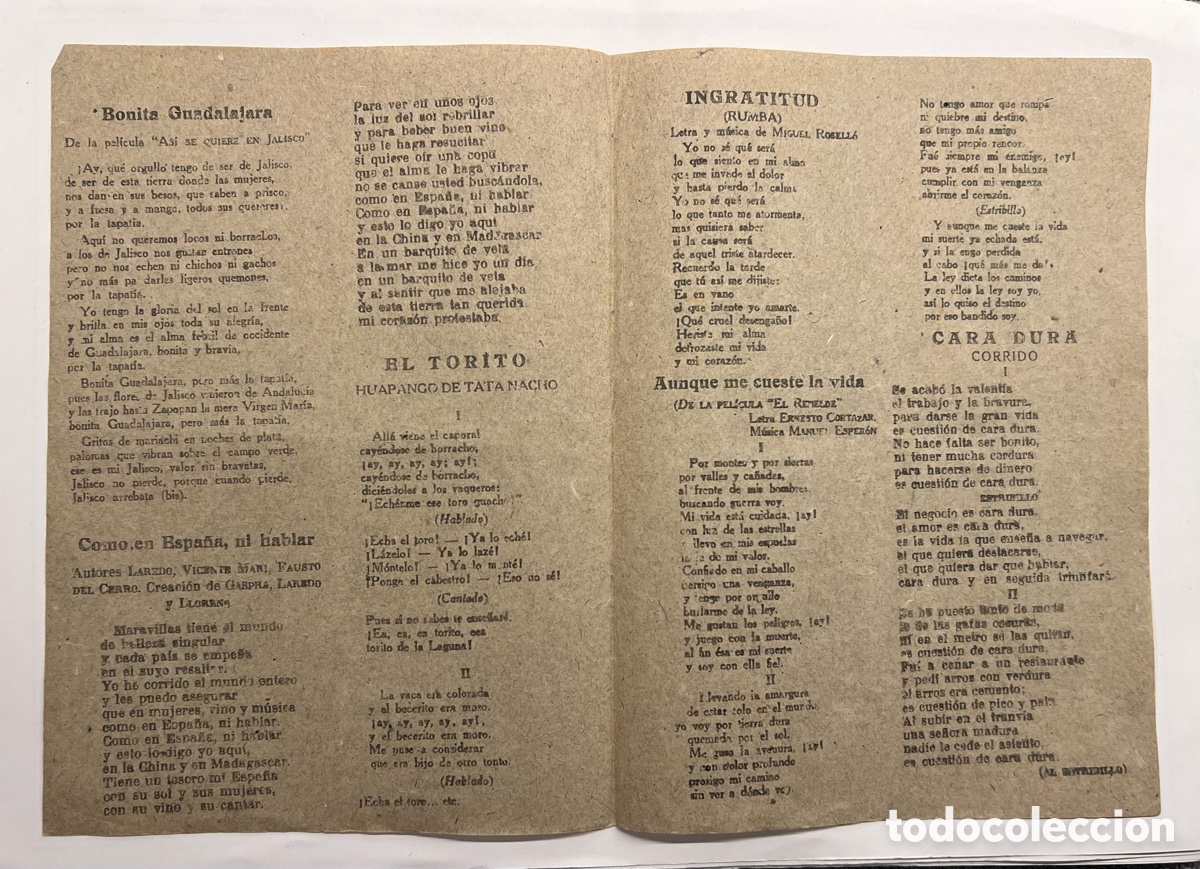 Bonita Guadalajara
De la película "Así se quiere en Jalisco"
¡Ay, qué orgullo tengo de ser de Jalisco,
de ser de esta tierra donde las mujeres,
nos dan en sus besos, que saben a prisco,
y a fresa y a mango, todos sus quereres;
por la tapatía.
Aquí no queremos locos ni borrachos,
a los de Jalisco nos gustan entrones
pero no nos echen ni chichos ni gachos
y no más pa darles ligeros quemones,
por la tapatía.
Yo tengo la gloria del sol en la frente
y brilla en mis ojos toda su alegría,
y mi alma es el alma febril de occidente
de Guadalajara, bonita y bravía,
por la tapatía.
Bonita Guadalajara, pero más la tapatía,
pues las flores de Jalisco vinieron de Andalucía
y las trajo hasta Zapopan la mera Virgen María,
bonita Guadalajara, pero más la tapatía.
Gritos de mariachi en noches de plata,
palomas que vibran sobre el campo verde,
ese es mi Jalisco, valor sin bravatas,
Jalisco no pierde, porque cuando pierde,
Jalisco arrebata (bis).
Como en España, ni hablar
Autores Laredo, Vicente Mari, Fausto
del Cerro. Creación de Gaspra, Laredo
y Llorens
Maravillas tiene el mundo
de belleza singular
y cada país se empeña
en el suyo resaltar.
Yo he corrido el mundo entero
y les puedo asegurar
que en mujeres, vino y música
como en España, ni hablar.
Como en España, ni hablar
y esto lo digo yo aquí,
en la China y en Madagascar.
Tiene un tesoro mi España
con su sol y sus mujeres,
con su vino y su cantar.
Para ver en unos ojos
la luz del sol rebrillar
y para beber buen vino
que le haga resucitar
si quiere oír una copla
que el alma le haga vibrar
no se canse usted buscándola,
como en España, ni hablar
Como en España, ni hablar
y esto lo digo yo aquí
en la China y en Madagascar
En un barquito de vela
a la mar me hice yo un día
en un barquito de vela
y al sentir que me alejaba
de esta tierra tan querida
mi corazón protestaba.
EL TORITO
HUAPANGO DE TATA NACHO
I
Allá viene el caporal
cayéndose de borracho,
¡ay, ay, ay, ay; ay!;
cayéndose de borracho,
diciéndoles a los vaqueros:
"¡Echérme ese toro guacho!
(Hablado)
¡Echa el toro! — ¡Ya lo eché!
¡Lázelo! — Ya lo lazé!
¡Móntelo! — ¡Ya lo monté!
"Ponga el cabestro! — ¡Eso no sé!
(Cantado)
Pues si no sabes te enseñaré.
¡Ea, ea, ea torito, eea
torito de la Laguna!
II
La vaca era colorada
y el becerito era moro,
¡ay, ay, ay, ay, ay!,
y el becerito era moro.
Me puse a considerar
que era hijo de otro tonto.
(Hablado)
¡Echa el toro... etc.
INGRATITUD
(RUMBA)
Letra y música de Miguel Roselló
Yo no sé qué será
lo que siento en mi alma
que me invade el dolor
y hasta pierdo la calma
Yo no sé qué será
lo que tanto me atormenta,
mas quisiera saber
si la causa será
de aquel triste atardecer.
Recuerdo la tarde
que tú así me dijiste:
Es en vano
el que intente yo amarte.
¡Qué cruel desengaño!
Heriste mi alma
destrozaste mi vida
y mi corazón.
Aunque me cueste la vida
(De la película "El Rebelde"
Letra Ernesto Cortazar,
Música Manuel Esperón
I
Por montes y por sierras
por valles y cañadas,
al frente de mis hombres
buscando guerra voy.
Mi vida está cuidada, ¡ay!
con luz de las estrellas
llevo en mis espuelas
la fe de mi valor.
Confiado en mi caballo
persigo una venganza,
y tengo por orgullo
burlarme de la ley.
Me gustan los peligros, ¡ay!
y juego con la muerte,
al fin ésa es mi suerte
y soy con ella fiel.
II
Llevando la amargura
de estar solo en el mundo
yo voy por tierra dura
quemada por el sol,
Me gusa la aventura, ¡ay!
y con dolor profundo
prosigo mi camino
sin ver a dónde voy
No tengo amor que rompa
ni quiebre mi destino,
no tengo más amigo
que mi propio rencor.
Fué siempre mi enemigo, ¡ay!
pues ya está en la balanza
cumplir con mi venganza
abrirme el corazón.
(Estribillo)
Y aunque me cueste la vida
mi suerte ya echada está,
y si la engo perdida
al cabo ¡qué más me da!
La ley dicta los caminos
y en ellos la ley soy yo,
así lo quiso el destino
por eso bandido soy.
CARA DURA
CORRIDO
I
Se acabó la valentía
el trabajo y la bravura,
para darse la gran vida
es cuestión de cara dura.
No hace falta ser bonito,
ni tener mucha cordura
para hacerse de dinero
es cuestión de cara dura.
ESTRIBILLO
El negocio es cara dura,
el amor es cara dura,
es la vida la que enseña a navegar,
el que quiera destacarse,
el que quiera dar que hablar,
cara dura y en seguida triunfará.
II
Se ha puesto tanto de moda
lo de las gafas oscuras,
si en el metro se las quitan,
es cuestión de cara dura.
Fuí a cenar a un restaurante
y pedí arros con verdura
el arros era cemento;
es cuestión de pico y pala.
Al subir en el tranvía
una señora madura
nadie le cede el asiento,
es cuestión de cara dura.
(AL ESTRIBILLO)
todocoleccion